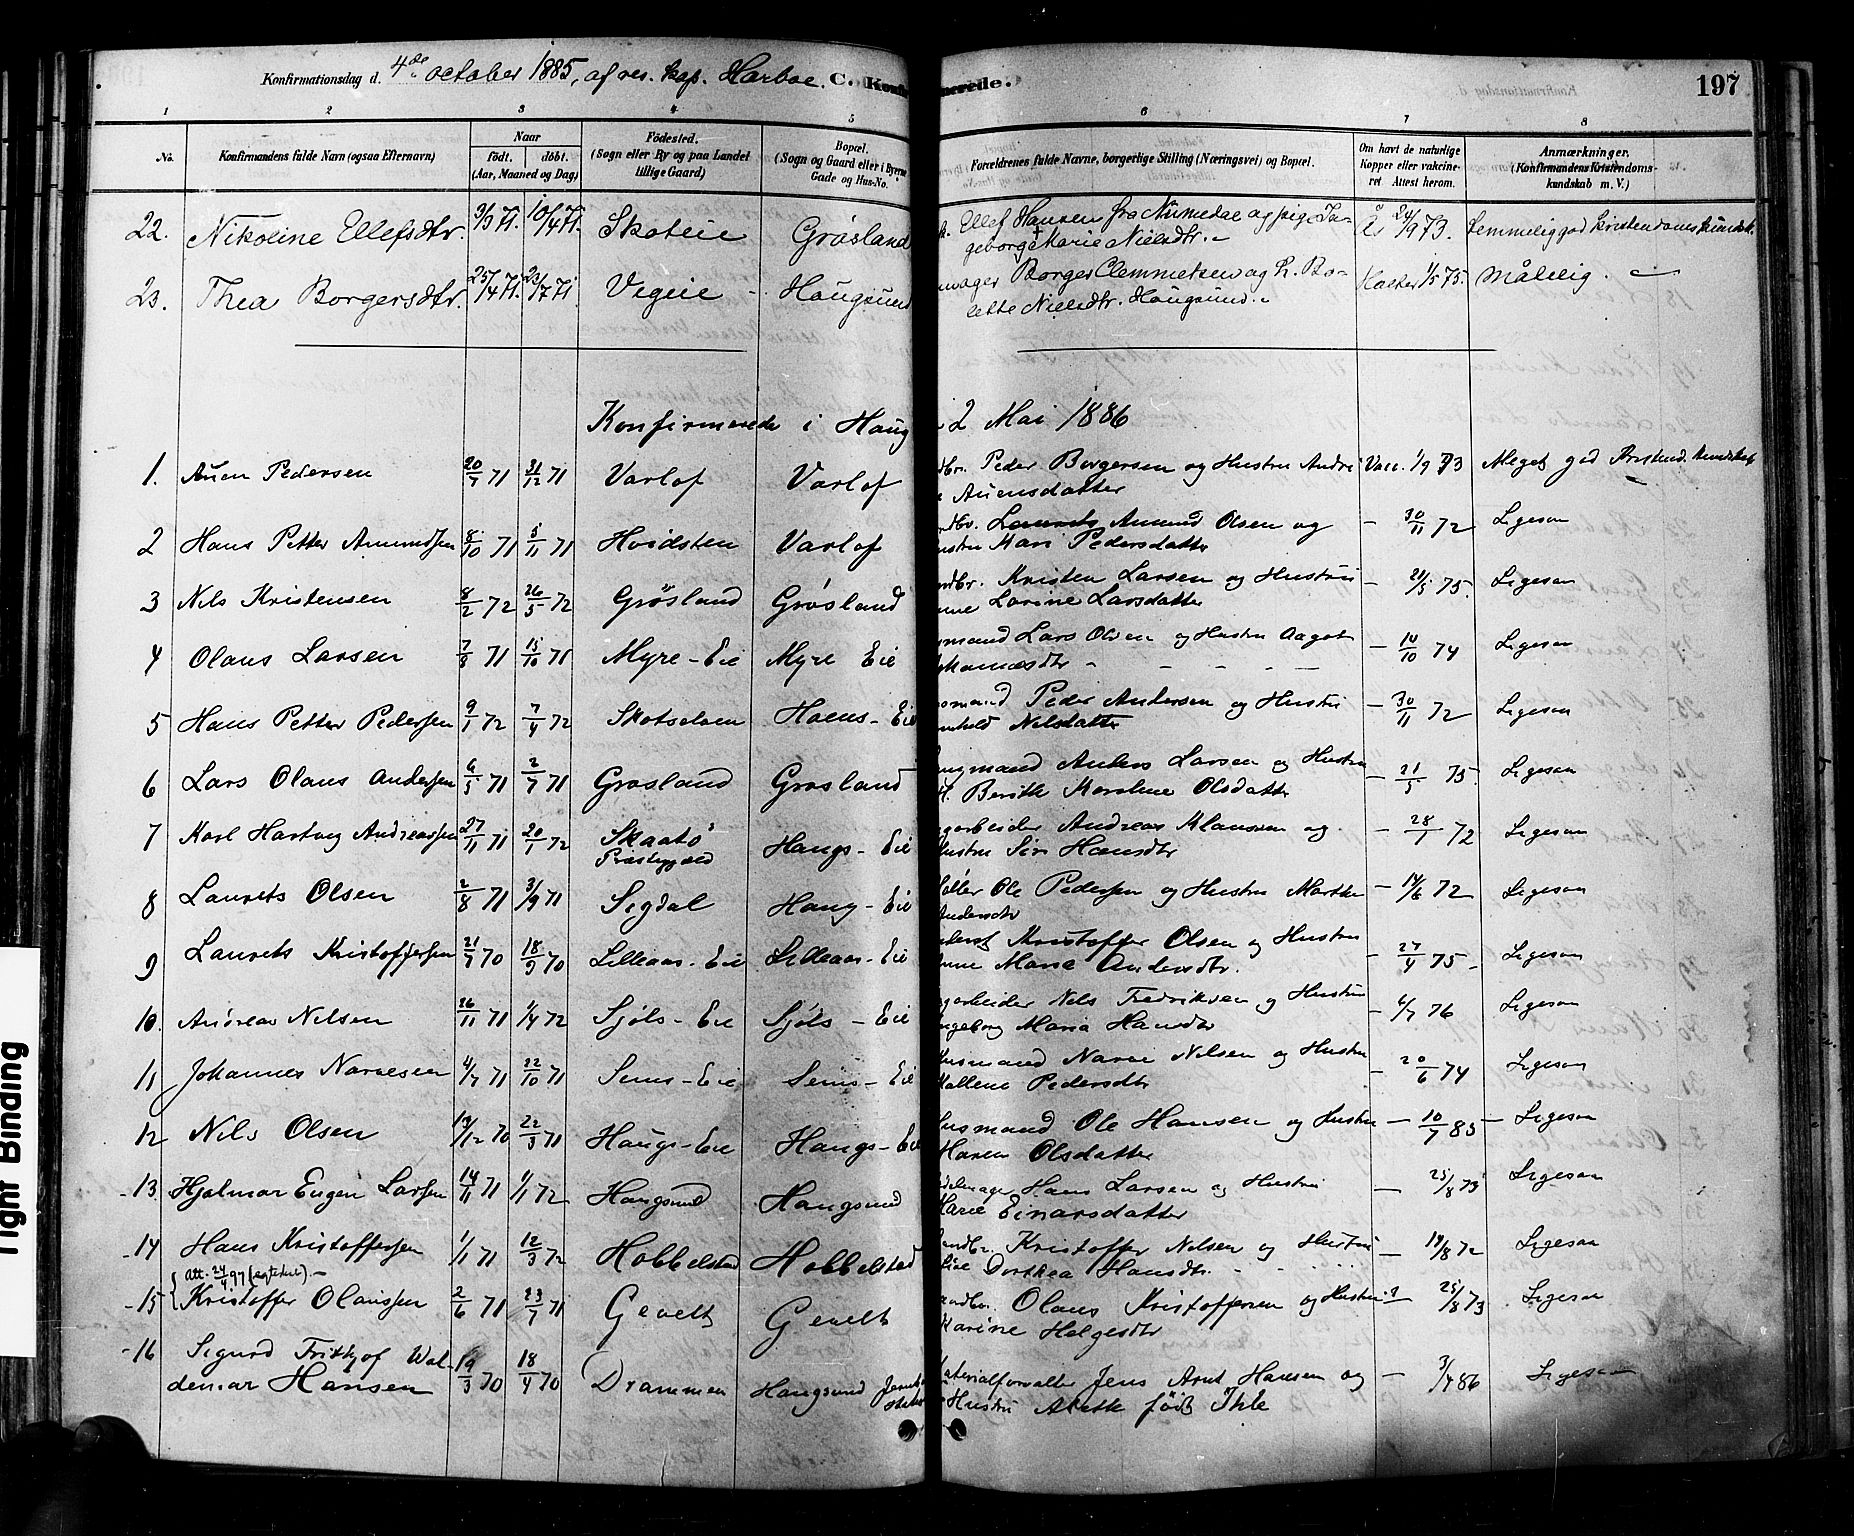 Konfirmationsdag d. 4de october 1885, af res. kap. Harboe. C. Konfirmerede. 197
1 2 3 4 5 6 7 8
No. Konfirmandens fulde Navn (ogsaa Efternavn) Naar født. døbt. (Aar, Maaned og Dag) Fødested. (Sogn eller By og paa Landet tillige Gaard) Bopæl. (Sogn og Gaard eller i Byerne Gade og Hus-No. Forældrenes fulde Navne, borgerlige Stilling (Næringsvei) og Bopæl. Om havt de naturlige Kopper eller vakcineret. Attest herom. Anmærkninger. (Konfirmandens Kristendomskundskab m. V.)
22. Nikoline Ellefsdtr. 9/3 71. 10/4 71. Skoteie Grøsland Ellef Hansen fra Numedal og pige In- 24/9 73. Temmelig god Kristendomskundsk.
geborg Marie Nielsdtr.
23. Thea Borgersdtr. 25/4 71. 23/7 71. Vegeie Haugsund Borger Clemmetsen og h. Bo- 1/5 75. Målelig.
lette Nielsdtr. Haugsund.
Konfirmerede i Haug 2 Mai 1886
1. Auen Pedersen 20/7 71 31/12 71 Varlof Varlof Peder Borgersen og Hustru Andri Vacc. 1/9 73 Meget god Kristend. kundskab
Auensdatter
2 Hans Petter Amundsen 8/10 71 5/11 71 Hvidsten Varlof Amund Olsen og - 30/11 72 Ligesaa
Mari Pedersdatter
3 Nils Kristensen 8/2 72 26/5 72 Grøsland Grøsland Kristen Larsen og Hustru - 21/5 75. Ligesaa
Lorine Larsdatter
4 Olaus Larsen 7/8 71 15/10 71 Myre-Eie Myre Eie Lars Olsen og Hustru Aagot - 10/10 74 Ligesaa
5 Hans Petter Pedersen 9/1 72 7/4 72 Skotselven Hoens-Eie Peder Andersen og Hustru - 30/11 72 Ligesaa
Nilsdatter
6 Lars Olaus Andersen 6/5 71 2/7 71 Grøsland Grøsland Anders Larsen og Hustru - 21/5 75. Ligesaa
Berthe Karoline Olsdatter
7 Karl Hartvig Andreassen 27/11 71 20/1 72 Skaatø Præstegjæld Haugs-Eie Andreas Klausen og - 28/1 72 Ligesaa
Hustru Siri Hansdtr
8 Laurits Olsen 2/8 71 3/9 71 Sigdal Haug-Eie Ole Pedersen og Hustru Marthe - 14/6 72 Ligesaa
Andersdtr
9 Laurits Kristoffersen 21/7 70 18/9 70 Lilleaas-Eie Lilleaas-Eie Kristoffer Olsen og Hustru - 27/4 75 - Ligesaa
Maria Andersdtr.
10. Andreas Nilsen 26/11 71 1/4 72 Sjøls-Eie Sjøls-Eie Nils Fredriksen og Hustru - 6/7 76 Ligesaa
Ingeborg Maria Hansdtr
11 Johannes Narvesen 4/7 71 22/10 71 Sems-Eie Sems-Eie Husmand Narve Nilsen og Hustru - 20/6 74 Ligesaa
Pedersdtr
12 Nils Olsen 19/12 70 22/3 71 Haugs-Eie Haugs-Eie Husmand Ole Hansen og Hustru - 10/7 85 - Ligesaa
Maren Olsdatter
13. Hjalmar Eugen Larsen 14/11 71 1/1 72 Haugsund Haugsund Hans Larsen og Hustru - 25/8 73 Ligesaa
Marie Einarsdatter
14 Hans Kristoffersen 1/1 71 12/3 72 Hobbelstad Hobbelstad Kristoffer Nilsen og Hustru - 19/8 72 Ligesaa
Dorthea Hansdtr.
Att. 24/4 97 (ægteskab).
15 Kristoffer Olaussen 2/6 71 23/7 71 Gevelt Gevelt Olaus Kristoffersen og Hustru - 25/8 73 Ligesaa
Karine Helgesdtr
16 Sigurd Frithjof Wal-
demar Hansen 19/3 70 18/4 70 Drammen Haugsund Materialforvalter Jens Arnt Hansen og - 3/4 86 Ligesaa
Hustru Alette født Ihle
Tight Binding